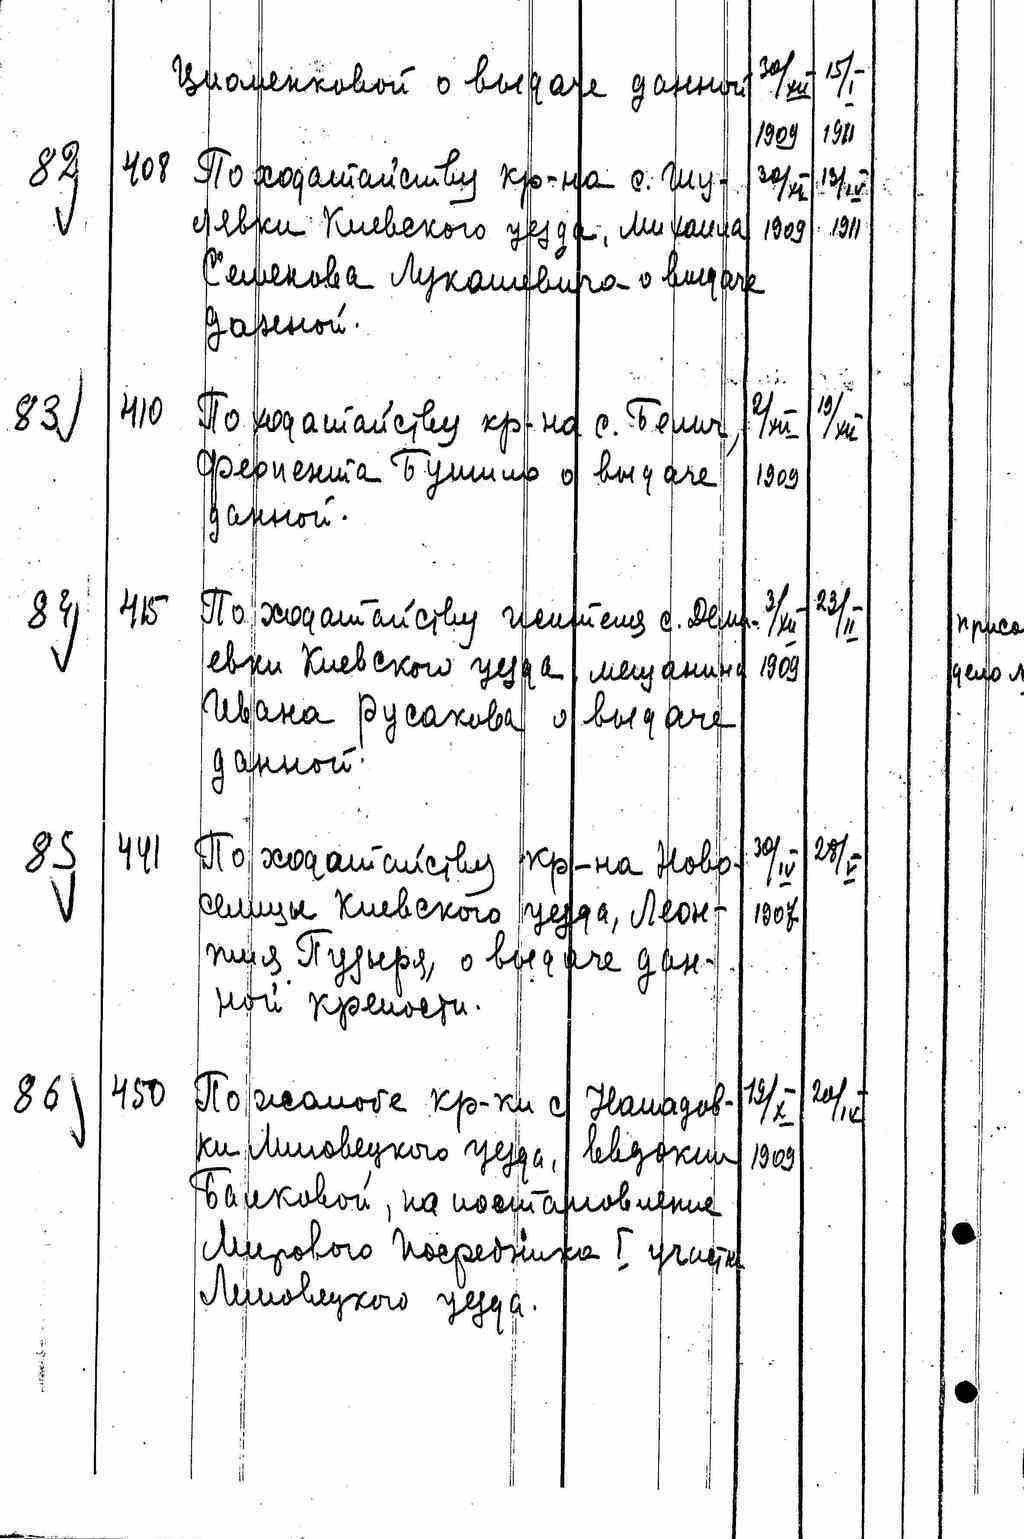 Циоменковой о выдаче данной 30/XII 15/I
1909 1911
82 408 По ходатайству кр-на с. Шу- 30/XI 13/IV
лявки Киевского уезда, Михаила 1909 1911
Семенова Лукашевича о выдаче
данной.
83 410 По ходатайству кр-на с. Белич, 2/XII 19/XII
Феопента Бушило о выдаче 1909
данной.
84 415 По ходатайству жителя с. Деми- 3/XII 23/II
присо
евки Киевского уезда, мещанина 1909
дело
Ивана Русакова о выдаче
данной.
85 441 По ходатайству кр-на Ново- 30/IV 28/V
селицы Киевского уезда, Леон- 1907
тия Пузыря, о выдаче дан-
ной крепости.
86 450 По жалобе кр-ки с Нападов- 19/X 20/IX
ки Липовецкого уезда, Евдокии 1909
Балковой, на постановление
Мирового Посредника I участка
Липовецкого уезда.